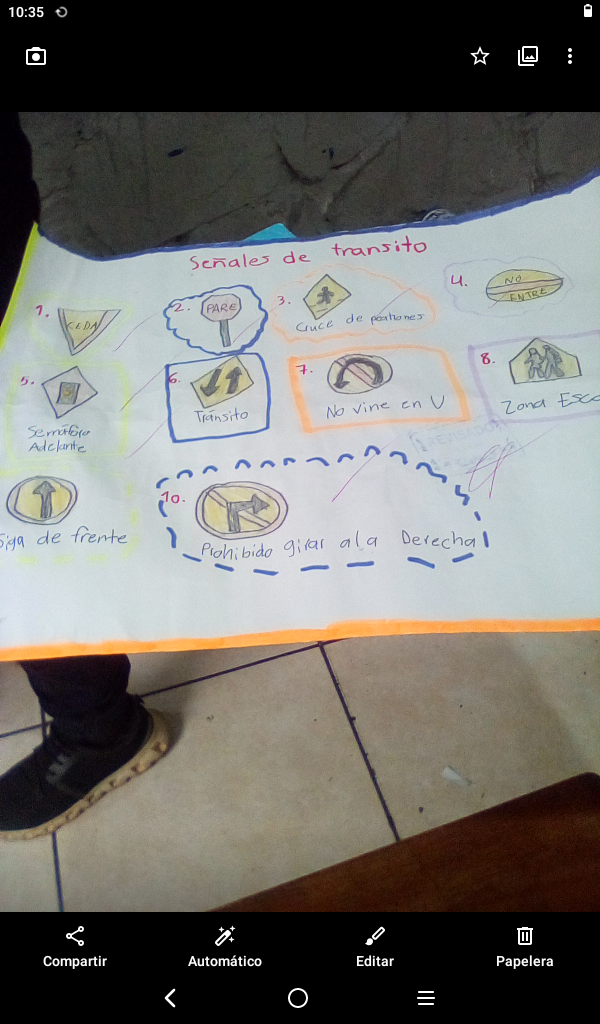 10:35
Señales de transito
1.
CEDA
2.
PARE
3.
Cruce de peatones
4.
NO
ENTRE
5.
Semáforo
Adelante
6.
Tránsito
7.
No vine en U
8.
Zona Esco
Siga de frente
10.
Prohibido girar a la Derecha
Compartir
Automático
Editar
Papelera